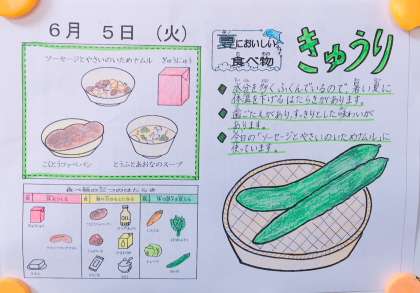 6月 5日 (火)
ソーセージとやさいのいためナムル
ぎゅうにゅう
こくとうコッペパン
とうふとあおなのスープ
食べ物の三つのはたらき
夏においしい
食べ物
きゅうり
水分を多くふくんでいるので、暑い夏に
体温を下げるはたらきがあります。
歯ごたえがあり、すっきりとした味わいが
あります。
今日の「ソーセージとやさいのいためナムル」に
使っています。